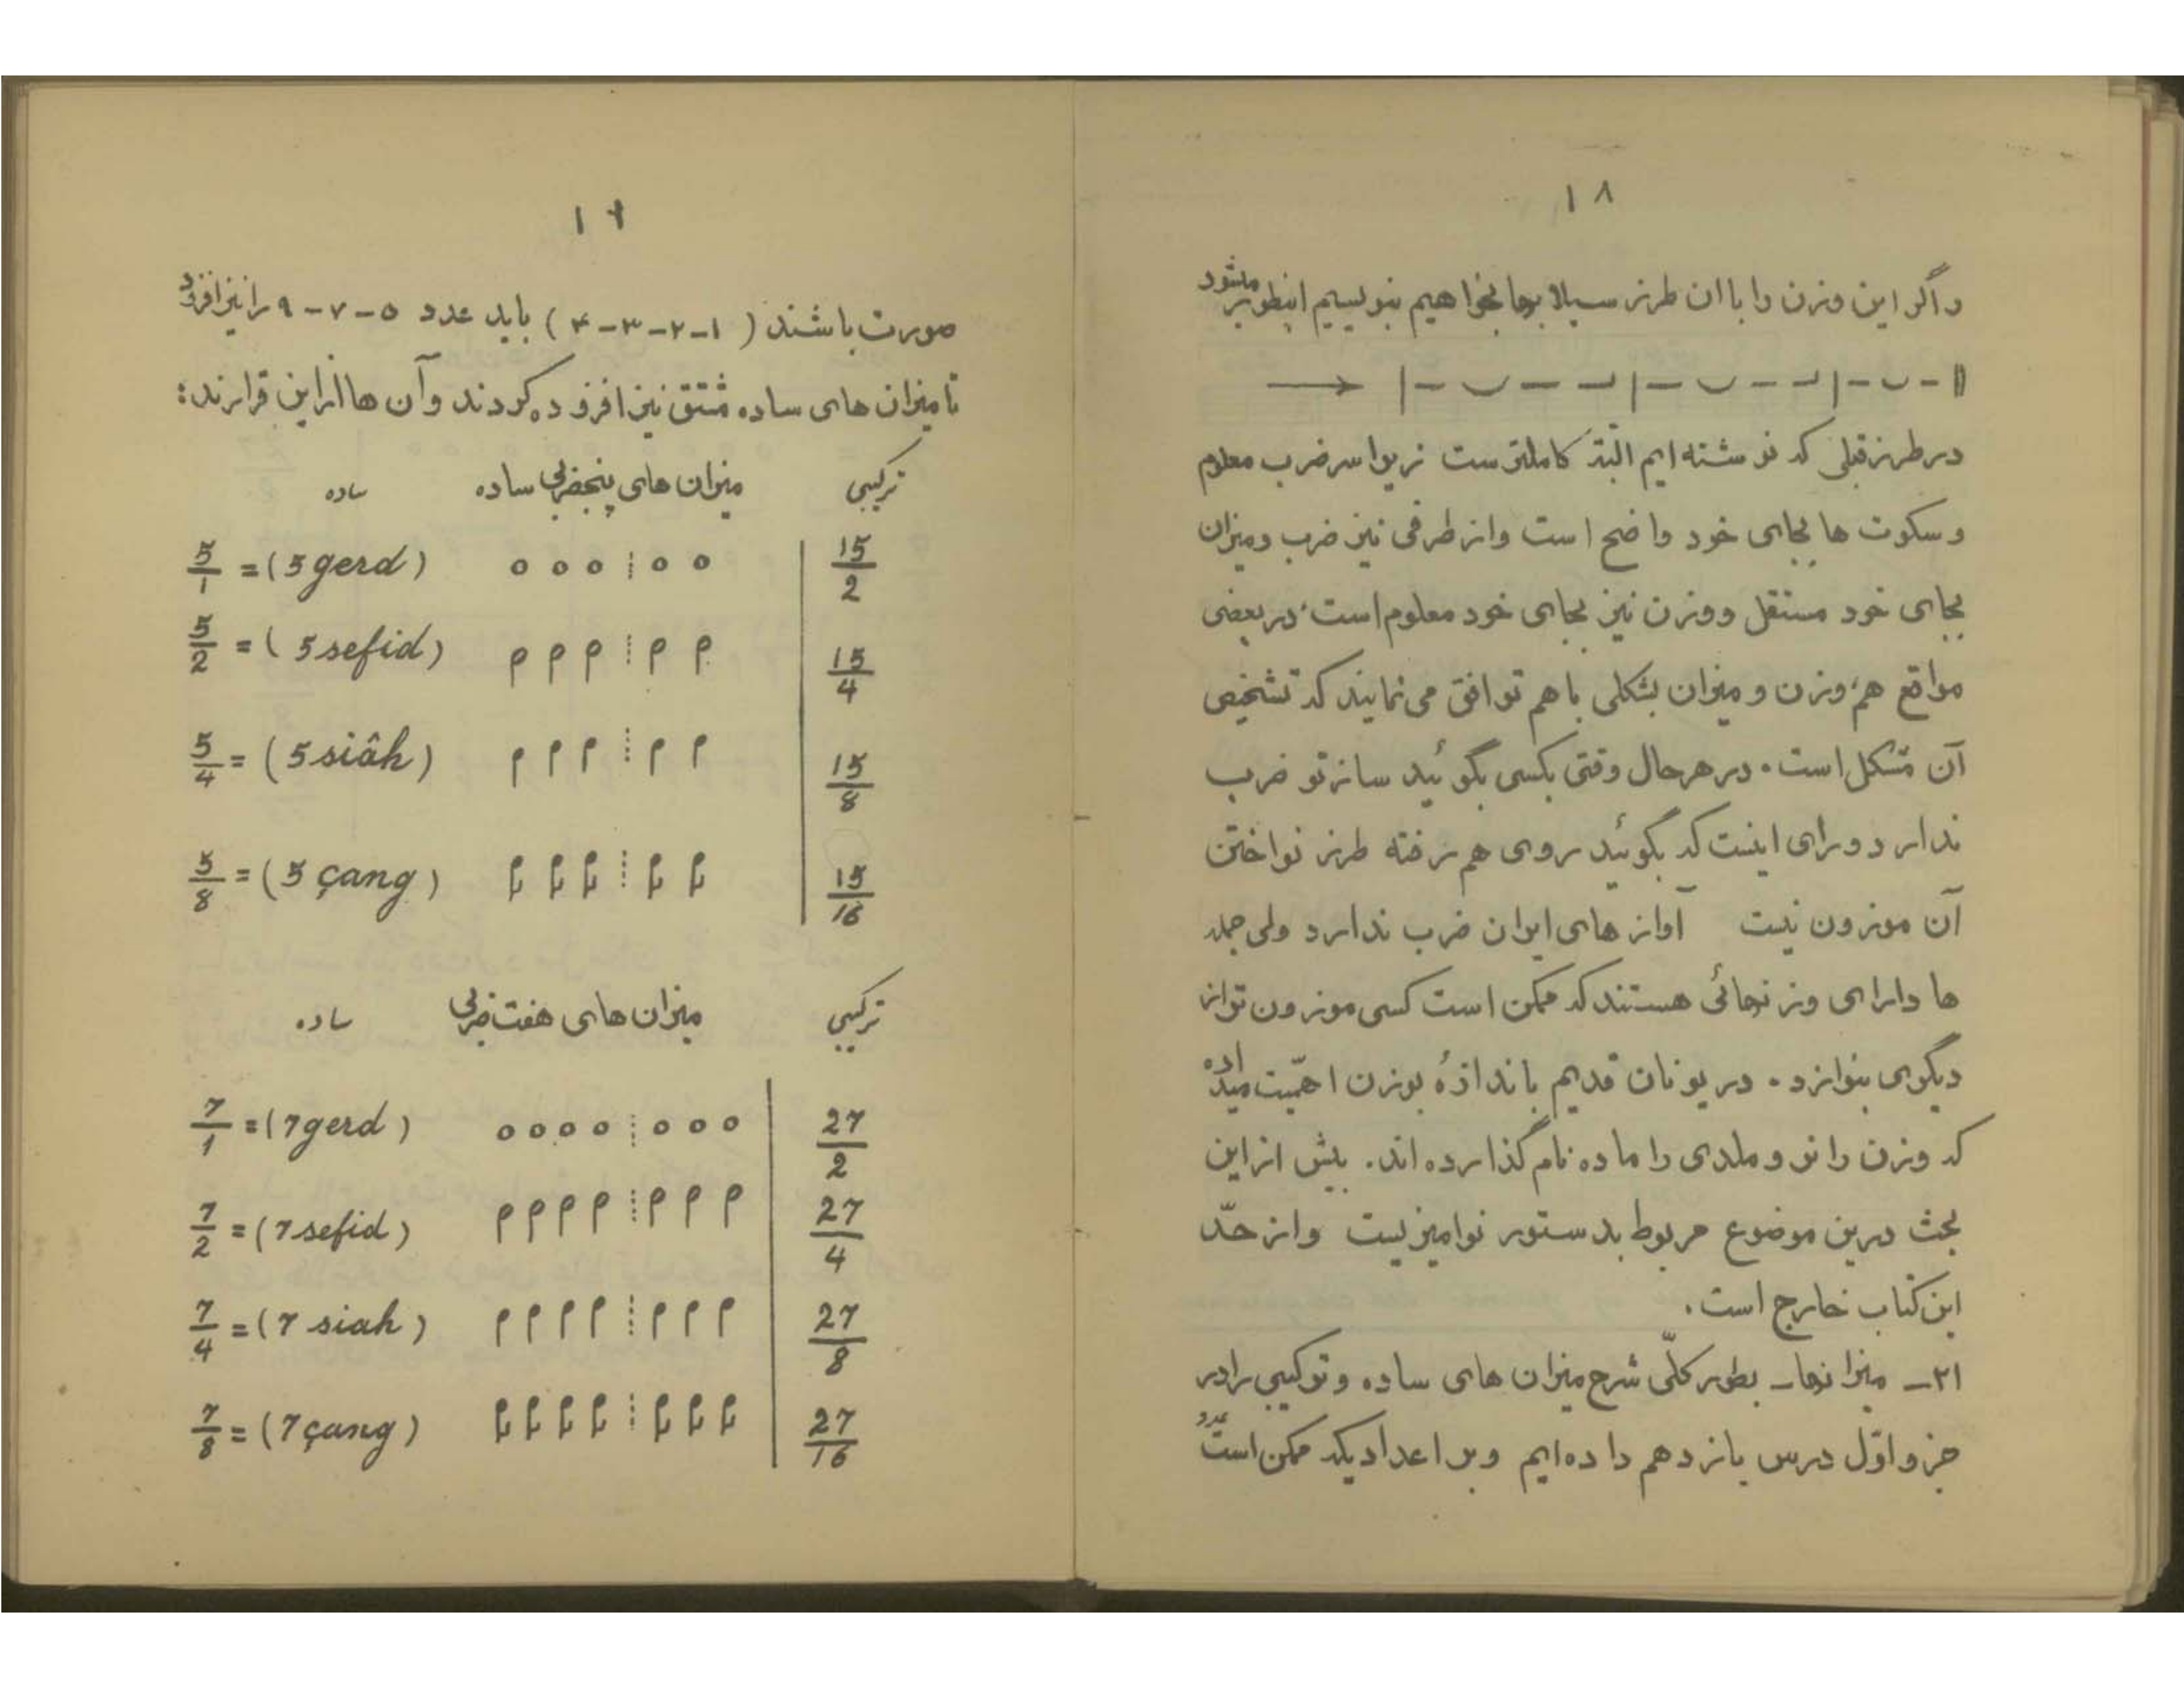 ۱۸
و اگر این وزن را با ان طرز سیلابها بخواهیم بنویسیم اینطور میشود
در طرز قبلی که نوشته ایم البته کاملترست زیرا سر ضرب معلوم
و سکوت ها بجای خود واضح است و از طرفی نیز ضرب و میزان
بجای خود مستقل و وزن نیز بجای خود معلوم است، در بعضی
مواقع هم، وزن و میزان بشکلی با هم توافق می نمایند که تشخیص
آن مشکل است. در هر حال وقتی بکسی بگوئید ساز تو ضرب
ندارد ورای اینست که بگوئید روی هم رفته طرز نواختن
آن موزون نیست آواز های ایران ضرب ندارد ولی جمله
ها دارای وزنهائی هستند که ممکن است کسی موزون تر از
دیگری بنوازد. در یونان قدیم باندازهٔ بوزن اهمیت میداده
که وزن را نر و ملدی را ماده نام گذارده اند. بیش از این
بحث درین موضوع مربوط بدستور نوامیزیست و از حدّ
این کتاب خارج است.
۲۱ـ میزانها ـ بطور کلّی شرح میزان های ساده و ترکیبی را در
جزو اوّل درس یازدهم داده ایم و بر اعدادیکه ممکن است عدد
۱۹
صورت باشند (۱-۲-۳-۴) باید عدد ۵-۷-۹ را نیز افزود
تا میزان های ساده مشتق نیز افزوده گردند و آن ها از این قرارند:
ترکیبی میزان های پنجضربی ساده ساده
5/1 = (5 gerd) 15/2
5/2 = (5 sefid) 15/4
5/4 = (5 siâh) 15/8
5/8 = (5 çang) 15/16
ترکیبی میزان های هفت ضربی ساده
7/1 = (7 gerd) 27/2
7/2 = (7 sefid) 27/4
7/4 = (7 siah) 27/8
7/8 = (7 çang) 27/16